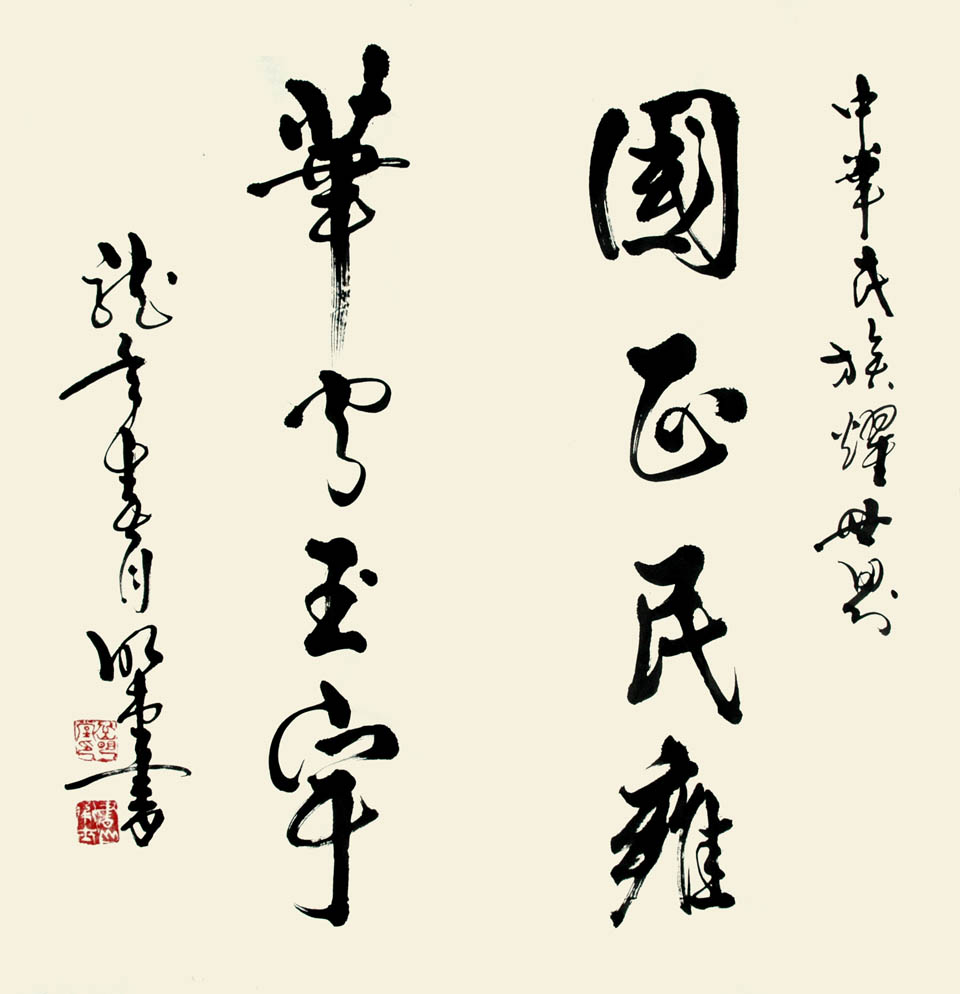 中華民族耀世界
國正民雍
華玉宇
龍年春月書